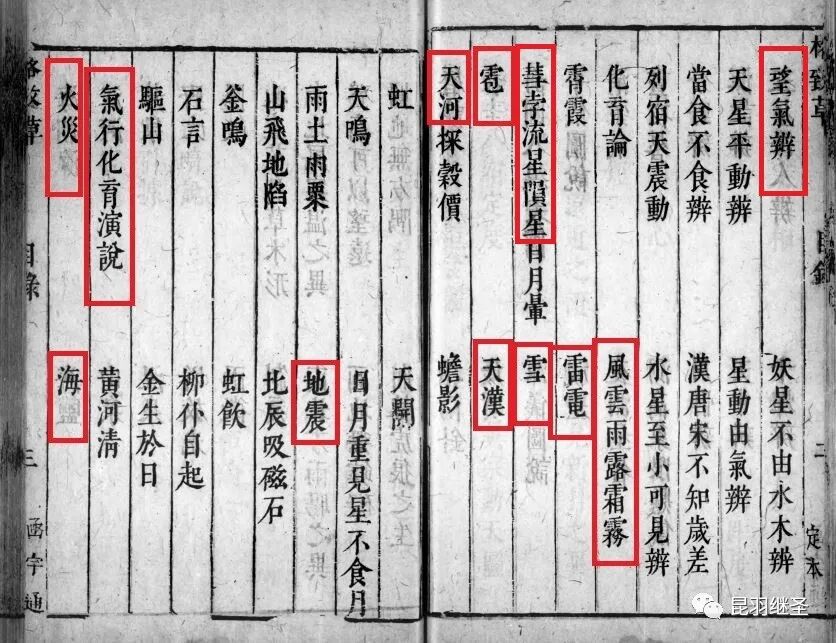 望氣辨
妖星不由水木辨
天星平動辨
星動由氣辨
當食不食辨
漢唐宋不知歲差
列宿天震動
水星至小可見辨
化育論
風雲雨露霜霧
霄霞
雷電
彗孛流星隕星日月暈
雪
雹
天漢
天河探穀價
蟾影
虹
天開
天鳴
日月重見星不食月
雨土雨粟
地震
山飛地陷
北辰吸磁石
釜鳴
虹飲
石言
柳仆自起
驅山
金生於日
氣行化育演說
黃河清
火災
海
格致草
目錄
二
定本
格致草
目錄
三
函宇通
昆羽继圣